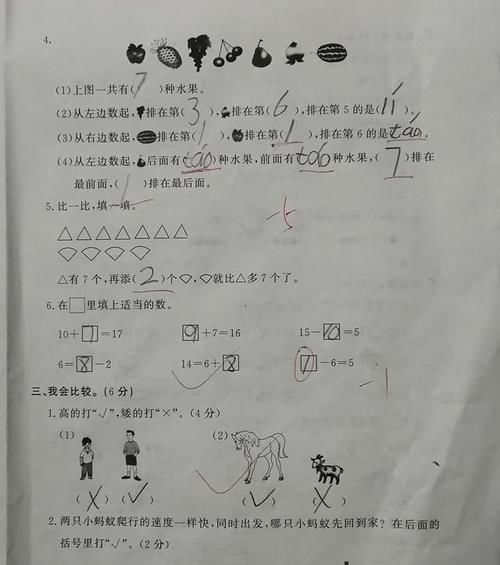 4.
(1)上图一共有(7)种水果。
(2)从左边数起,排在第(3),排在第(6),排在第5的是(li)。
(3)从右边数起,排在第(1),排在第(1),排在第6的是(táo)。
(4)从左边数起,后面有(táo)种水果,前面有(táo)种水果,(7)排在
最前面,(1)排在最后面。
5.比一比,填一填。
-5
△有7个,再添(2)个,就比△多7个了。
6.在□里填上适当的数。
10+7=17 9+7=16 15-=5
6=8-2 14=6+8 -6=5
-1
三、我会比较。(6分)
1.高的打“√”,矮的打“×”。(4分)
(1) (2)
(×) (√) (√) (×)
2.两只小蚂蚁爬行的速度一样快,同时出发,哪只小蚂蚁先回到家?在后面的
括号里打“√”。(2分)